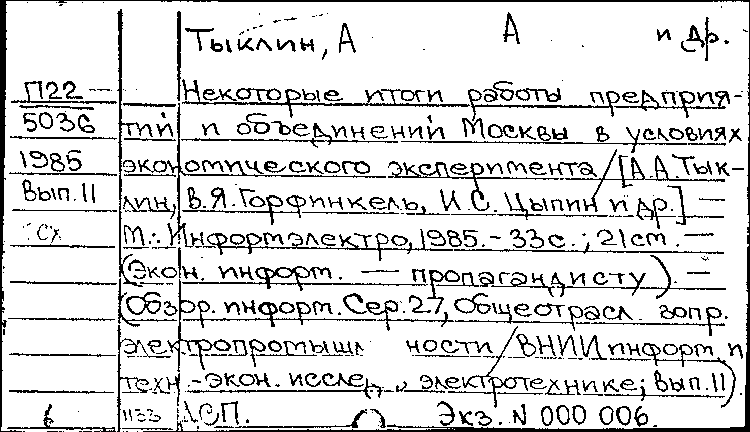 Тыклин, А А и др.
П22 Некоторые итоги работы предприя-
5036 тий и объединений Москвы в условиях
1985 экономического эксперимента / [А.А.Тык-
Вып.11 лин, В.Я.Горфинкель, И.С.Цыпин и др.] —
М.: Информэлектро, 1985. - 33с.; 21см. —
(Экон. информ. — пропагандисту). —
(Обзор. информ. Сер.27, Общеотрасл. вопр.
электропромышл ности / ВНИИ информ. и
техн.-экон. исслед. электротехнике; Вып.11)
1133 ДСП. Экз. N 000 006.